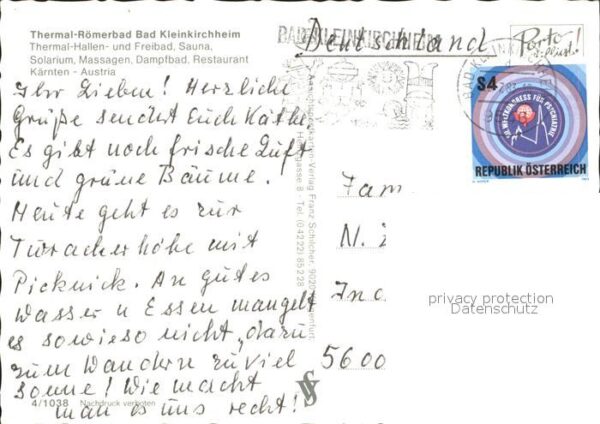 Thermal-Römerbad Bad Kleinkirchheim
Thermal-Hallen- und Freibad, Sauna,
Solarium, Massagen, Dampfbad, Restaurant
Kärnten - Austria
Ihr Lieben! Herzliche
Grüße sendet Euch Käthe
Es gibt noch frische Luft
und grüne Bäume.
Heute geht es zur
Turacherhöhe mit
Picknick. An gutes
Wasser u Essen mangelt
es sowieso nicht, dazu
zum Wandern zuviel
Sonne! Wie macht
man es uns recht!
4/1038 Nachdruck verboten
Ansichtskarten-Verlag Franz Schilcher, 9020 Klagenfurt
gasse 8 - Tel. (04222) 85228
BAD KLEINKIRCHHEIM
Deutschland
Porto
BAD KLEINKIRCHHEIM
S4
WELTKONGRESS FÜR PSYCHIATRIE
REPUBLIK ÖSTERREICH
Fam
N.
5600
privacy protection
Datenschutz